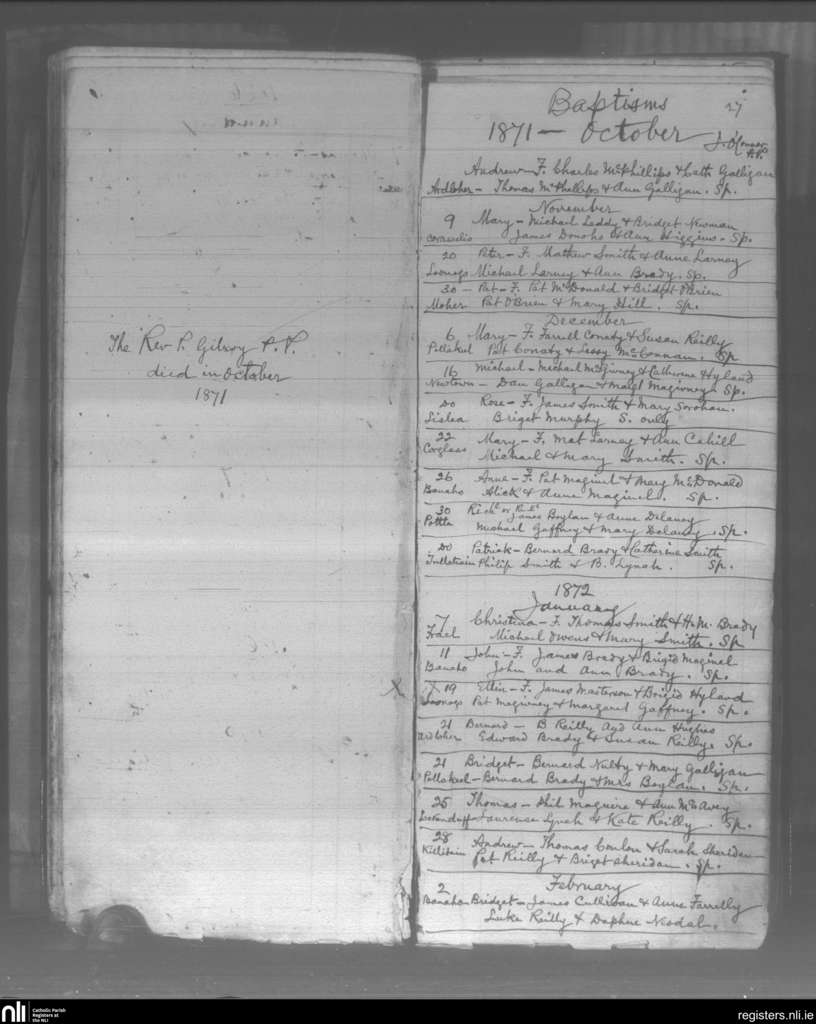 The Rev P. Gilroy P.P.
died in October
1871
Baptisms
27
1871 — October
Andrew — F. Charles McPhillips & Cath Galligan
Ardloher — Thomas McPhillips & Ann Galligan. Sp.
November
9 Mary — Michael Leddy & Bridget Newman
James Donoho & Ann Higgins. Sp.
20 Peter — F. Mathew Smith & Anne Larney
Michael Larney & Ann Brady. Sp.
30 — Pat — F. Pat McDonald & Bridget O'Brien
Moher Pat O'Brien & Mary Hill. Sp.
December
6 Mary — F. Farrell Conaty & Susan Reilly
Pollakeel Pat Conaty & Sessy McConnan. Sp
16 Michael — Michael McGivney & Catherine Hyland
Newtown — Dan Galligan & Margt Magivney. Sp.
Do Rose — F. James Smith & Mary
Lislea Briget Murphy S. only
22 Mary — F. Mat Larney & Ann Cahill
Corglass Michael & Mary Smith. Sp.
26 Anne — F. Pat Maginel & Mary McDonald
Banaho & Anne Maginel. Sp.
30 James Boylan & Anne Delaney
Michael Gaffney & Mary Delaney. Sp.
Do Patrick — Bernard Brady & Catherine Smith
Philip Smith & B. Lynch. Sp.
1872
January
7 Christina — F. Thomas Smith & Brady
Michael Owens & Mary Smith. Sp
11 John — F. James Brady & Brigid Maginel
Banaho John and Ann Brady. Sp.
X X 19 Ellin — F. James Masterson & Brigid Hyland
Pat Magivney & Margaret Gaffney. Sp.
21 Bernard — B Reilly Ann Hughes
Ardloher Edward Brady & Susan Reilly. Sp.
21 Bridget — Bernard Nulty & Mary Galligan
Pollakeel — Bernard Brady & Mrs Boylan. Sp.
25 Thomas — Phil Maguire & Ann McAvey
Laurence Lynch & Kate Reilly. Sp.
28 Andrew — Thomas Conlon & Sarah Sheridan
Pat Reilly & Briget Sheridan. Sp.
February
2
Banaho Bridget — James Cullivan & Anne Farrelly
Luke Reilly & Daphne
nli Catholic Parish
Registers at
the NLI
registers.nli.ie